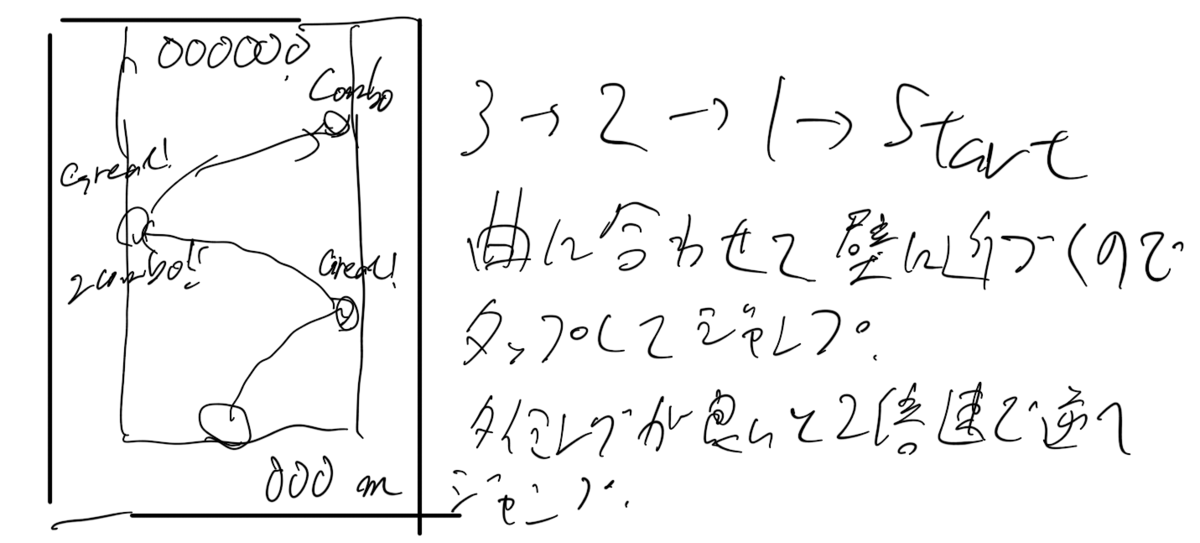 000000
Combo
Great!
2combo!!
Great!
000 m
3→2→1→Start
曲に合わせて壁に近づくので
タップしてジャンプ。
タイミングが悪いと2倍速で逆へ
ジャンプ。